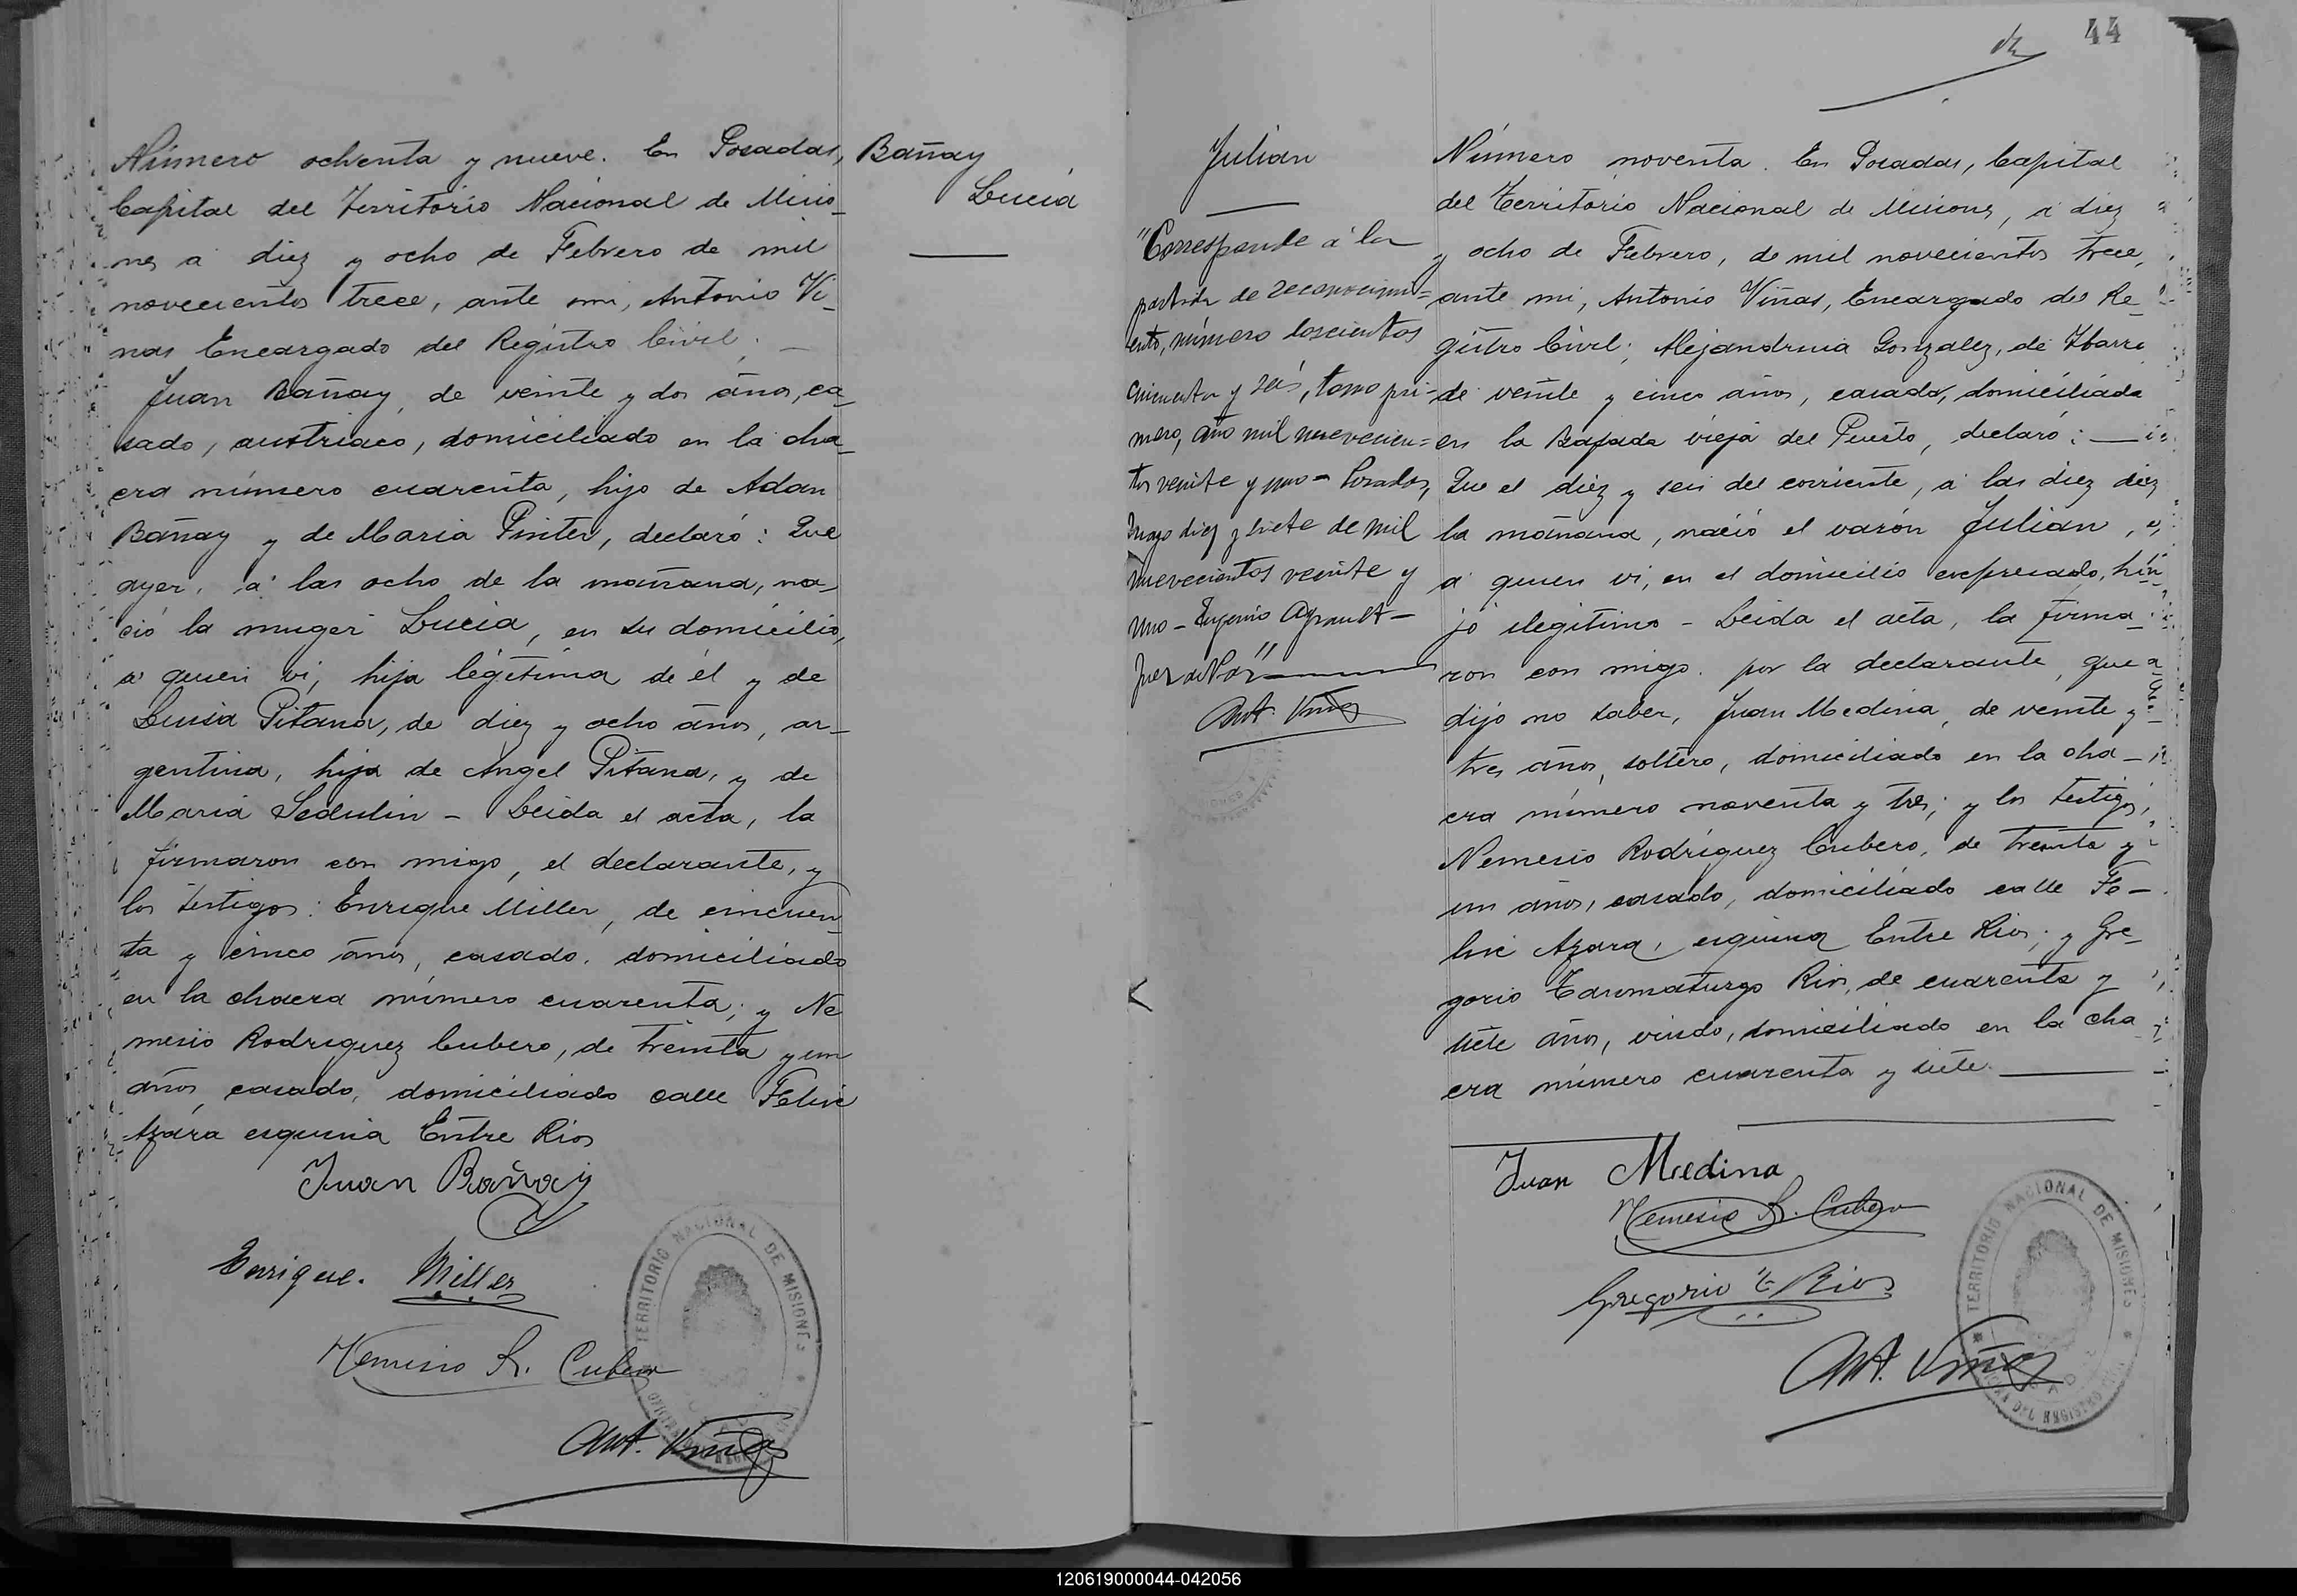 Número ochenta y nueve. En Posadas,
Capital del Territorio Nacional de Misio-
nes a diez y ocho de Febrero de mil
novecientos trece, ante mi, Antonio Vi-
ñas Encargado del Registro Civil; —
Juan Bañay, de veinte y dos años, ca-
sado, austriaco, domiciliado en la cha-
cra número cuarenta, hijo de Adan
Bañay y de Maria Pinter, declaró: Que
ayer, á las ocho de la mañana, na-
ció la muger Lucia, en su domicilio,
á quien vi, hija legítima de él y de
Luisa Pitana, de diez y ocho años, ar-
gentina, hija de Angel Pitana, y de
Maria Sedulin - Leida el acta, la
firmaron con migo, el declarante, y
los testigos: Enrique Miller, de cincuen-
ta y cinco años, casado, domiciliado
en la chacra número cuarenta; y Ne
mesio Rodriguez Cubero, de treinta y un
años, casado, domiciliado calle Felix
Azára esquina Entre Rios
Juan Bañay
Enrique. Miller
Nemesio R. Cubero
Ant. Viñas
TERRITORIO NACIONAL DE MISIONES
Bañay
Lucia
44
Julian
"Corresponde á la
partida de reconocimi-
ento, número doscientos
cincuenta y seis, tomo pri-
mero, año mil novecien-
tos veinte y uno - Posadas,
Mayo diez y siete de mil
novecientos veinte y
uno - Eugenio
Juez de Paz"
Ant. Viñas
Número noventa. En Posadas, Capital
del Territorio Nacional de Misiones, á diez
y ocho de Febrero, de mil novecientos trece,
ante mi, Antonio Viñas, Encargado del Re-
gistro Civil; Alejandrina Gonzalez, de Ibarra
de veinte y cinco años, casada, domiciliada
en la Bajada vieja del Puerto, declaró: —
Que el diez y seis del corriente, á las diez diez
la mañana, nació el varón Julian,
á quien vi, en el domicilio expresado, hi-
jo ilegítimo - Leida el acta, la firma-
ron con migo. por la declarante, que
dijo no saber, Juan Medina, de veinte y
tres años, soltero, domiciliado en la cha-
cra número noventa y tres; y los testigos,
Nemesio Rodriguez Cubero, de treinta y
un años, casado, domiciliado calle Fe-
lix Azara, esquina Entre Rios; y Gre-
gorio Taumaturgo Rios, de cuarenta y
siete años, viudo, domiciliado en la cha
cra número cuarenta y siete.
Juan Medina
Nemesio R. Cubero
Gregorio T. Rios
Ant. Viñas
TERRITORIO NACIONAL DE MISIONES
120619000044-042056